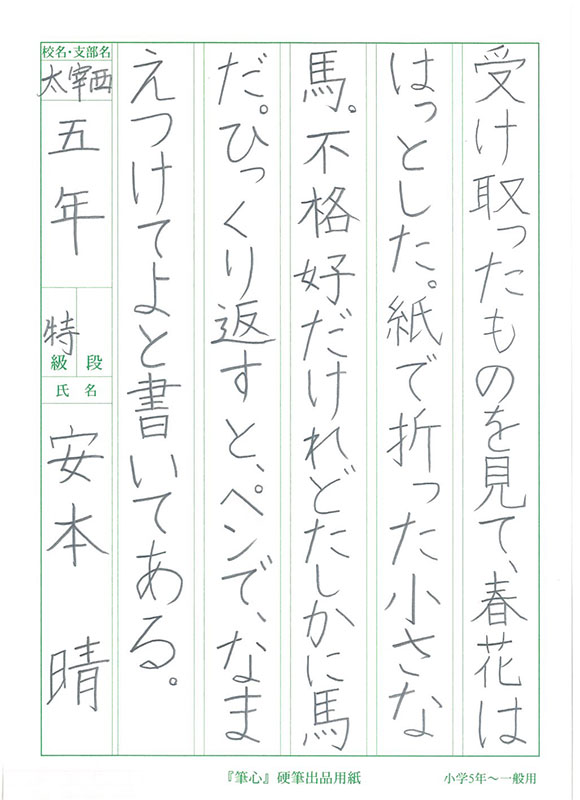 受け取ったものを見て、春花は
はっとした。紙で折った小さな
馬。不格好だけれどたしかに馬
だ。ひっくり返すと、ペンで、なま
えつけてよと書いてある。
校名・支部名
太宰西
五年
特
級 段
氏名
安本 晴
『筆心』硬筆出品用紙
小学5年～一般用